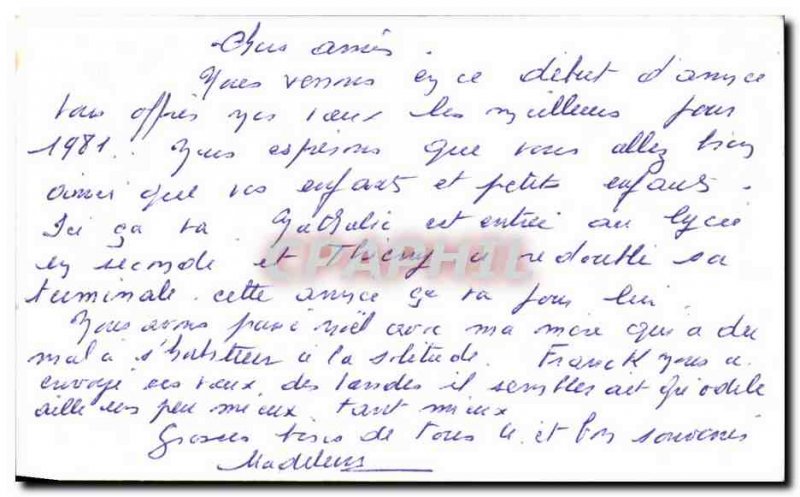 Chers amis.
Nous venons en ce début d'année
vous offrir nos voeux les meilleurs pour
1981. Nous espérons que vous allez bien
ainsi que vos enfants et petits enfants.
Ici ça va. Nathalie est entrée au lycée
en seconde et Thierry a redoublé sa
terminale. cette année ça va pour lui.
Nous avons passé Noël avec ma mère qui a du
mal à s'habituer à la solitude. Franck nous a
envoyé ses voeux des Landes il semblerait qu'odile
aille un peu mieux. tant mieux
Grosses bises de tous 4 et bon souvenir
Madeleine
CPAPHIL